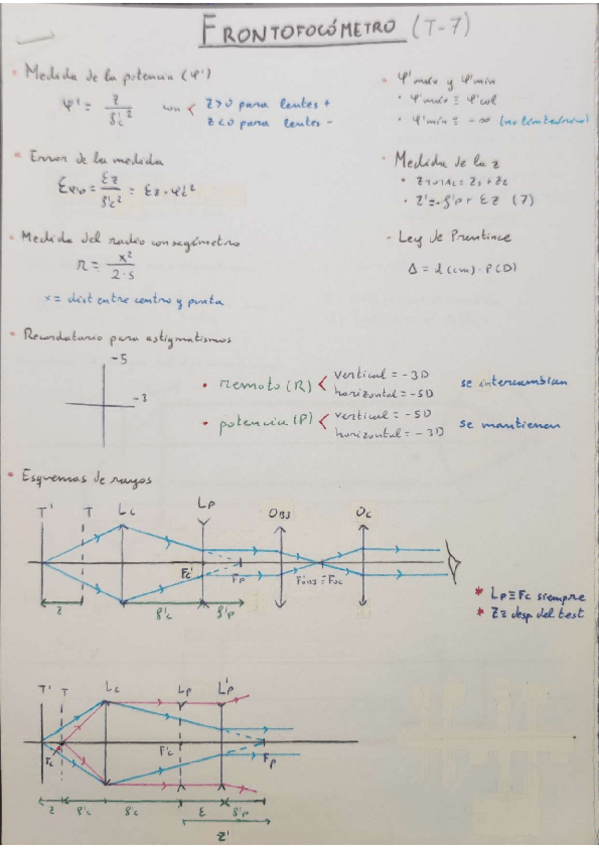 FRONTOFOCÓMETRO (T-7)
• Medida de la potencia (φ')
φ' = z / f'c² con < z>0 para lentes +
z<0 para lentes -
• φ'máx y φ'mín
• φ'máx ≡ φ'col
• φ'mín ≡ -∞ (no limitaciones)
• Error de la medida
= Ez / f'c² = Ez · φc²
• Medida de la z
• ZTOTAL = Z1 + Z2
• Z' = -f'p + EZ (7)
• Medida del radio con sagímetro
r = x² / 2·s
x = dist entre centro y punta
- Ley de Prentince
Δ = d (cm) · P(D)
• Recordatorio para astigmatismos
-5
-3
• remoto (R) < vertical = -3D
horizontal = -5D
se intercambian
• potencia (P) < vertical = -5D
horizontal = -3D
se mantienen
• Esquemas de rayos
T' T Lc Lp OBJ Oc
Fc' Fp F'OBJ ≡ Foc
z f'c f'p
* Lp ≡ Fc siempre
* Z ≡ desp del test
T' T Lc Lp L'p
Fc F'c Fp
z f'c f'c ε f'p
z'